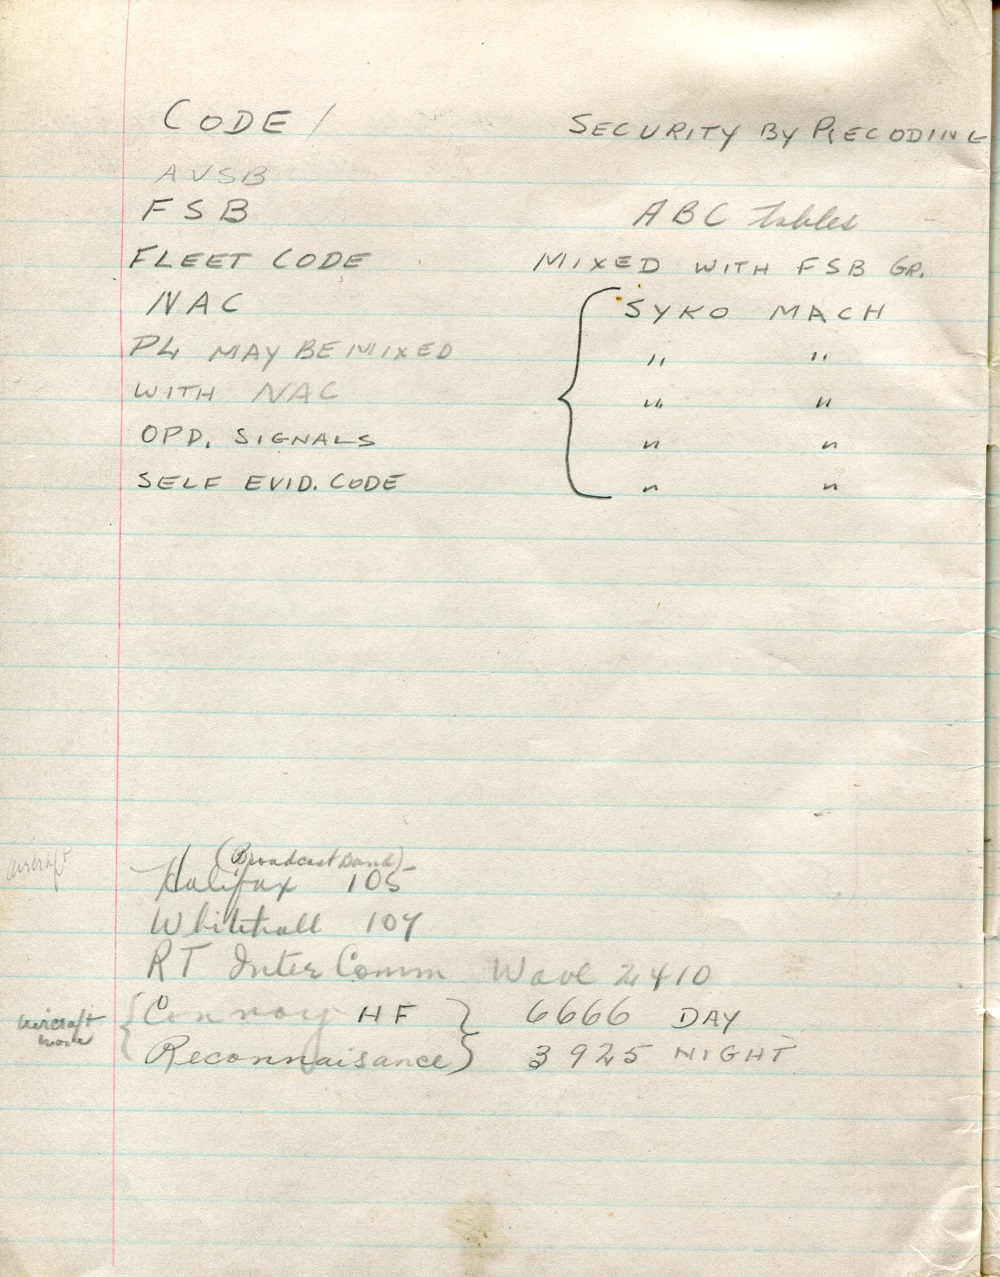 CODE /    SECURITY BY RECODING
AVSB
FSB    ABC tables
FLEET CODE    MIXED WITH FSB GR.
NAC    SYKO MACH
PL MAY BE MIXED    " "
WITH NAC    " "
OPD. SIGNALS    " "
SELF EVID. CODE    " "
aircraft
(Broadcast Band)
Halifax 105
Whitehall 107
RT Inter Comm Wave 2410
aircraft Convoy HF 6666 DAY
Reconnaisance 3925 NIGHT